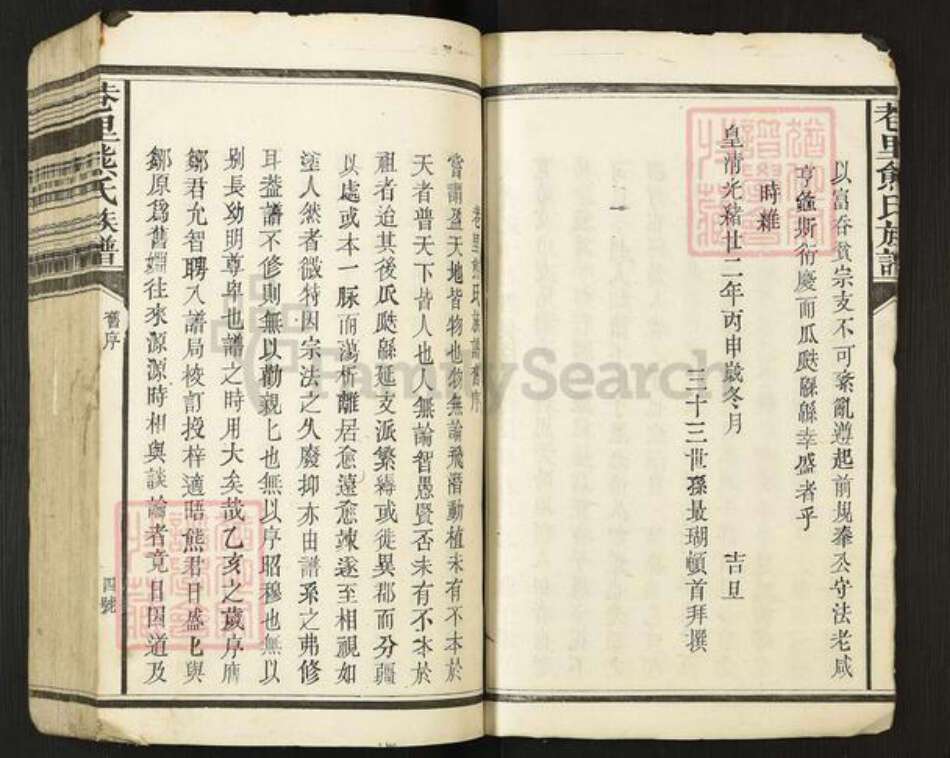 巷里熊氏族譜
以富吞貧宗支不可紊亂遵起前規奉公守法老咸
亨螽斯衍慶而瓜瓞緜緜幸盛者乎
時維
皇清光緒廿二年丙申歲冬月 吉旦
三十三世孫最瑚頓首拜撰
巷里熊氏族譜舊序
嘗謂盈天地皆物也物無論飛潛動植未有不本於
天者普天下皆人也人無論智愚賢否未有不本於
祖者迨其後瓜瓞緜延支派繁縟或徙異郡而分疆
以處或本一脈而蕩析離居愈遠愈竦遂至相視如
塗人然者微特因宗法之久廢抑亦由譜系之弗修
耳蓋譜不修則無以勸親匕也無以序昭穆也無以
别長幼明尊卑也譜之時用大矣哉乙亥之歲序膺
鄒君允智聘入譜局校訂授梓適晤熊君日盛匕與
鄒原爲舊姻往來源源時相與談論者竟日因道及
巷里熊氏族譜
舊序
四號
FamilySearch